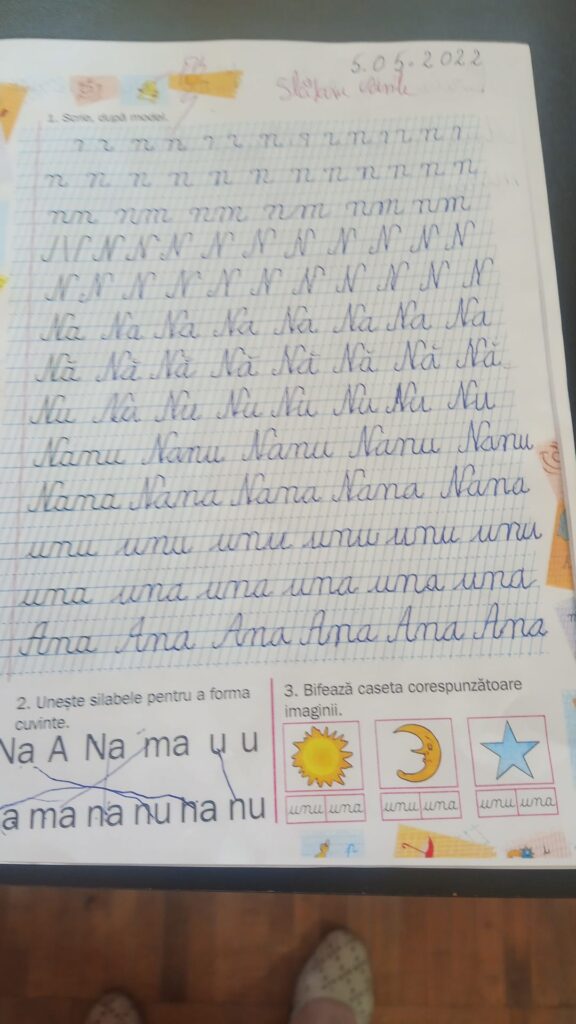 5.05.2022
1. Scrie, după model.
n n n n n
n n n n n n n n n n n
nn nm nm nm nm nm
N N N N N N N N N N
N N N N N N N N N N N
Na Na Na Na Na Na Na Na
Nă Nă Nă Nă Nă Nă Nă Nă
Nu Nu Nu Nu Nu Nu Nu Nu
Nanu Nanu Nanu Nanu Nanu
Nana Nana Nana Nana Nana
unu unu unu unu unu unu
una una una una una una
Ana Ana Ana Ana Ana Ana
2. Unește silabele pentru a forma
cuvinte.
Na A Na ma u u
a ma na nu na nu
3. Bifează caseta corespunzătoare
imaginii.
unu una unu una unu una